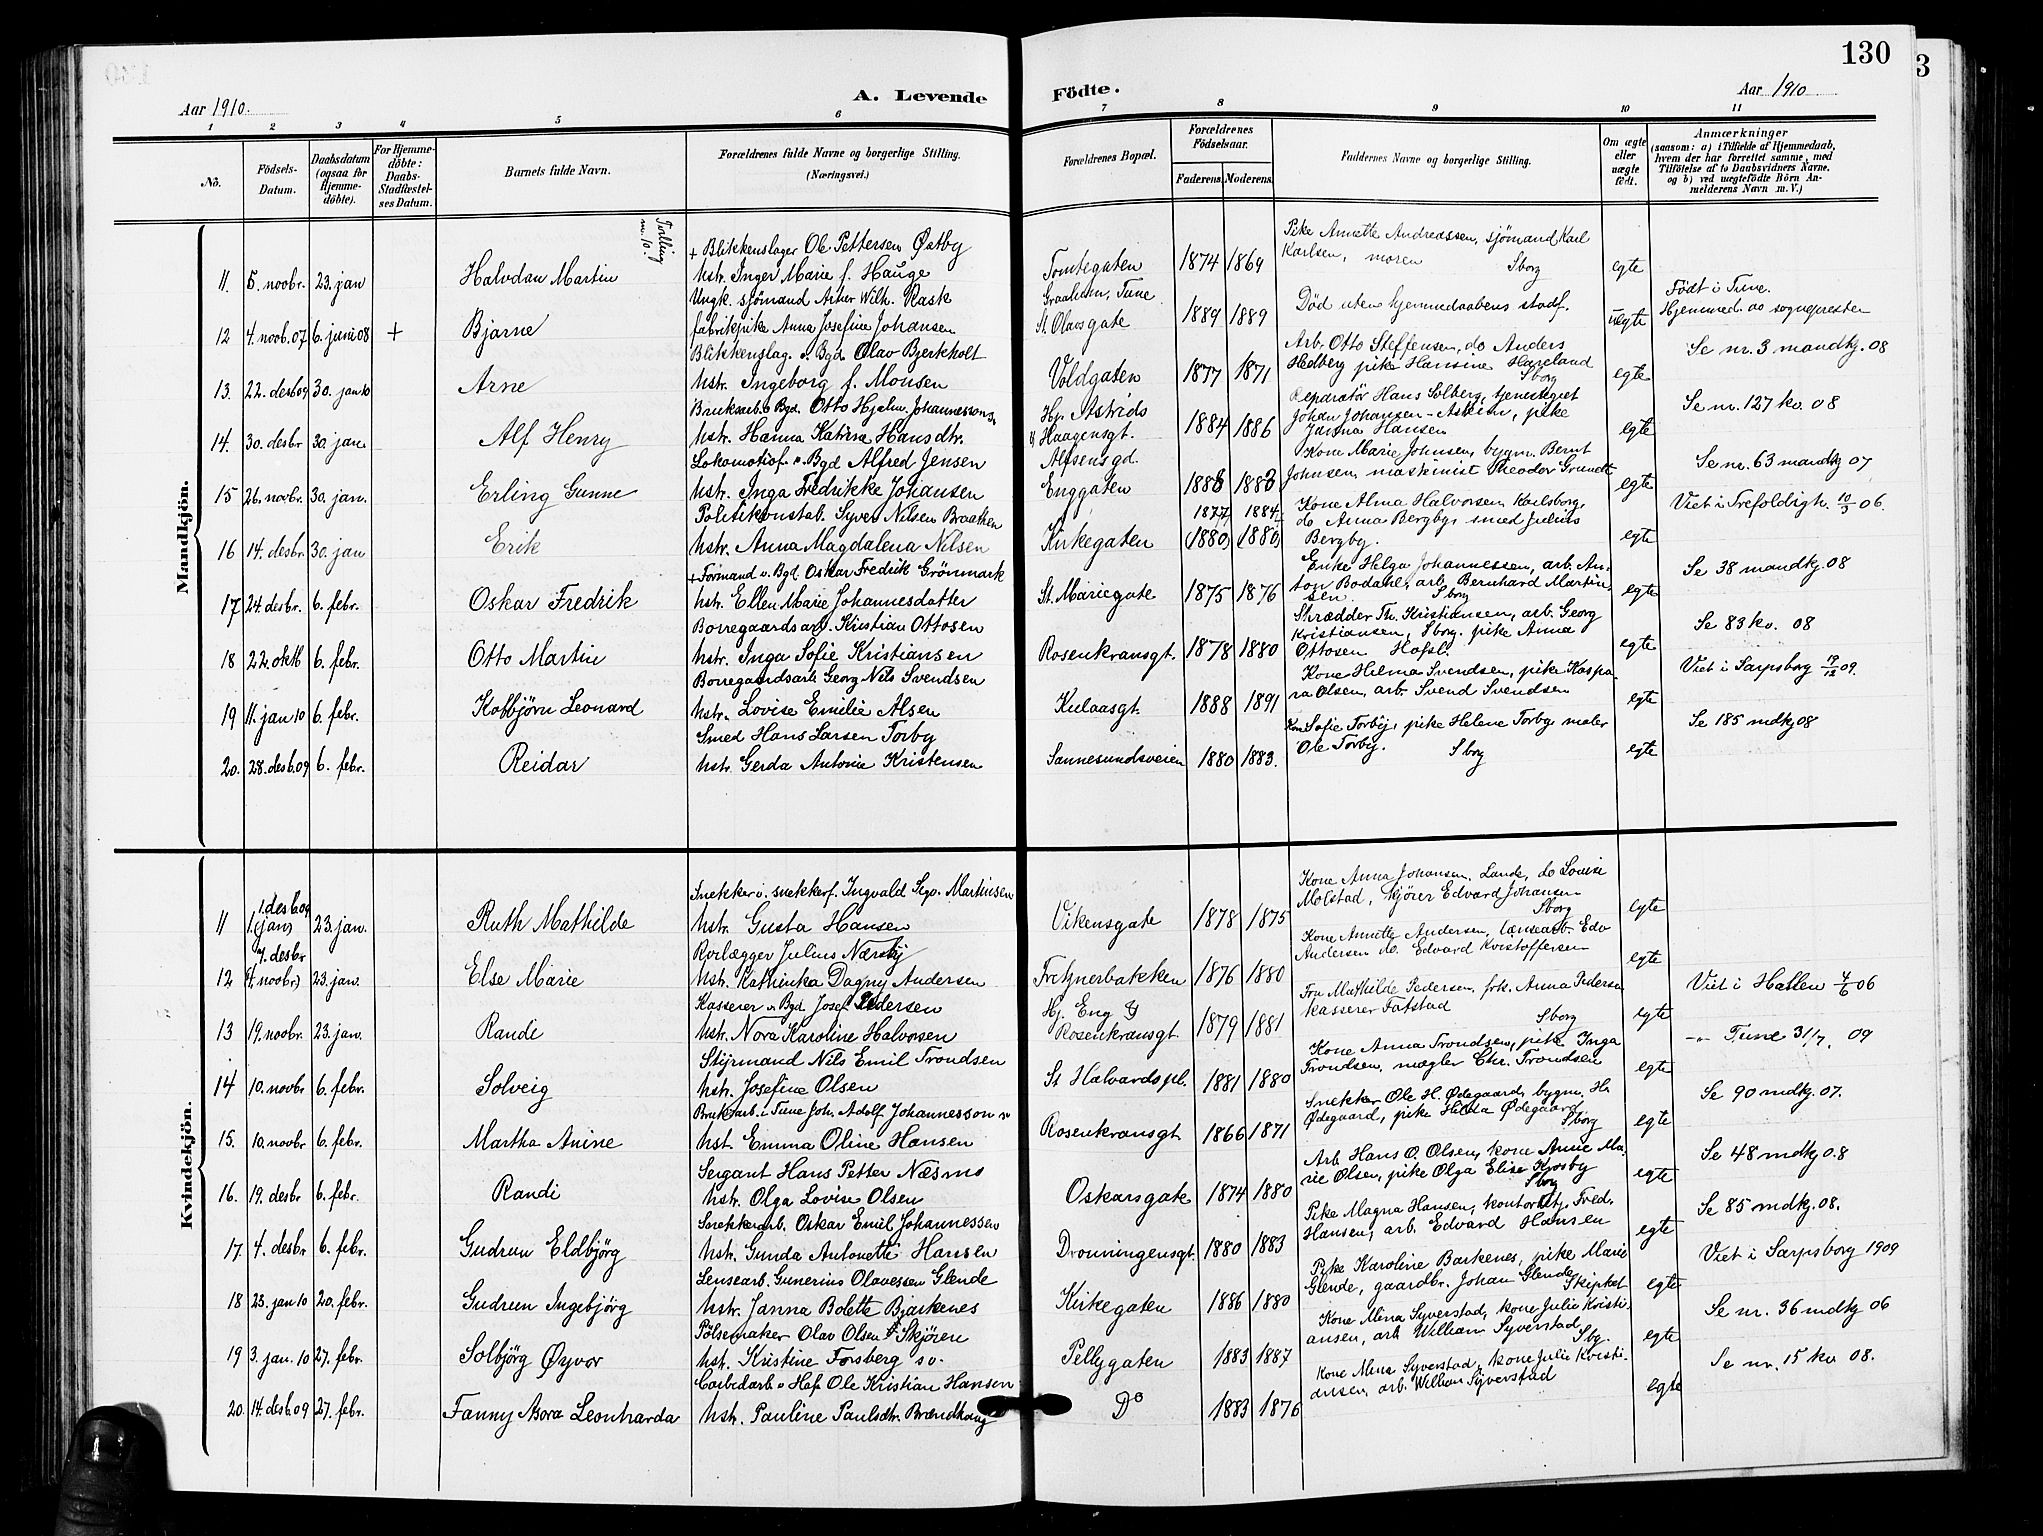 130
3
Aar 1910.
A. Levende Födte.
Aar 1910
1 2 3 4 5 6 7 8 9 10 11
No.
Födsels-Datum.
Daabsdatum (ogsaa for Hjemme-döbte).
For Hjemme-döbte: Daabs-Stadfæstel-ses Datum.
Barnets fulde Navn.
Forældrenes fulde Navne og borgerlige Stilling. (Næringsvei.)
Forældrenes Bopæl.
Forældrenes Födselsaar.
Faderens. Moderens.
Faddernes Navne og borgerlige Stilling.
Om ægte eller uægte födt.
Anmærkninger (saasom: a) i Tilfælde af Hjemmedaab, hvem der har forrettet samme, med Tilföielse af to Daabsvidners Navne, og b) ved uægtefödte Börn Anmelderens Navn m. V.)
Mandkjön.
Tvilling m. 10.
+ Blikkenslager Ole Pettersen Østby
Pike Annette Andreassen, sjömand Karl
11. 5. novbr. 23. jan Halvdan Martin hstr. Inger Marie f. Hauge Tomtegaten 1874 1869 Karlsen, moren Sborg egte
Ungk. sjömand Artur Wilh. Rask Graaholm, Tune Født i Tune.
12 4. novb. 07 6. juni 08 + Bjarne fabrikpike Anna Josefine Johansen St. Olavsgate 1889 1889 Død uten hjemmedaabens stadf. uegte Hjemmed. av sognepresten
Blikkenslag. o. Bgd. Olav Bjerkholt Arb. Otto Steffensen, do Anders Se nr. 3 mandkj. 08
13. 22. desb 09 30. jan 10 Arne hstr. Ingeborg f. Monsen Voldgaten 1877 1871 Hedberg pike Hansine Hageland Sborg egte
Bruksarb. o Bgd. Otto Hjalm. Johannesson Hj. Astrids Reparatør Hans Solberg, tjenestegut Se nr. 127 kv. 08
14. 30. desbr 30. jan. Alf Henry hstr. Hanna Katrina Hansdtr. & Haagensgt. 1884 1886 Johan Johansen - Askim, pike Janna Hansen egte
Lokomotivf. o. Bgd Alfred Jensen Alfsensgd. Kone Marie Johnsen, bygm. Bernt Se nr. 63 mandkj 07
15 26. novbr. 30. jan. Erling Gunne hstr. Inga Fredrikke Johansen Enggaten 1888 1888 Johnsen, maskinist Theodor Grundt egte Viet i Trefoldigh. 10/3 06.
Politikonstab. Syver Nilsen Braathen 1877 1884 Kone Alma Halvorsen Karlsborg,
16 14. desbr. 30. jan Erik hstr. Anna Magdalena Nilsen Kirkegaten (1880) (1880) do Anna Bergby, smed Julius Bergby. egte
+ Formand o. Bgd. Oskar Fredrik Grönmark Enke Helga Johannessen, arb. An- Se 38 mandkj. 08
17 24 desbr. 6. febr. Oskar Fredrik hstr. Ellen Marie Johannesdatter St. Mariegate 1875 1876 ton Bodahl, arb. Bernhard Martinsen. Sborg egte
Borregaardsarb. Kristian Ottosen Skrædder Th. Kristiansen, arb. Georg Se 83 kv. 08
18 22. oktb 6. febr. Otto Martin hstr. Inga Sofie Kristiansen Rosenkransgt. 1878 1880 Kristiansen, Sborg. pike Anna Ottosen Hafsl. egte
Borregaardsarb Georg Nils Svendsen Kone Hilma Svendsen, pike Kaspa- Viet i Sarpsborg 19/12 09.
19 11. jan 10 6. febr. Kolbjörn Leonard hstr. Lovise Emilie Alsen Kulaasgt. 1888 1891 ra Olsen, arb. Svend Svendsen egte
Smed Hans Larsen Torby Kone Sofie Torby, pike Helene Torby maler Se 185 mdkj 08
20. 28. desb. 09 6. febr. Reidar hstr. Gerda Antonie Kristensen Sannesundsveien 1880 1883. Ole Torby. Sborg egte
Kvindekjön.
Snekker o. snekkerf. Ingvald Sigv. Martinsen Kone Anna Johansen, Lande, do Lovise
1. desb. 09
11 1. (jan) 23. jan. Ruth Mathilde hstr. Gusta Hansen Vikensgate 1878 1875 Molstad, kjörer Edvard Johansen Sborg egte
7. desbr Rorlægger Julius Nærsby Kone Annette Andersen, lænsearb. Edv
12 (4. novbr.) 23. jan. Else Marie hstr. Kathinka Dagny Andersen Fretynerbakken 1876 1880 Andersen do. Edvard Kristoffersen egte
Kasserer o. Bgd. Josef Pedersen Hj. Eng & Fru Mathilde Pedersen, frk. Anna Pedersen Viet i Hallen 4/6 06
13 19. novbr. 23. jan. Randi hstr. Nora Karoline Halvorsen Rosenkransgt. 1879 1881 kasserer Fatstad Sborg egte
Styrmand Nils Emil Trondsen Kone Anna Trondsen, pike Inga -"- Tune 31/7. 09
14 10. novbr 6. febr. Solveig hstr. Josefine Olsen St Halvardspl. 1881 1880 Trondsen, mægler Chr. Trondsen egte
Bruksarb. i Tune Joh. Adolf Johannesson Snekker Ole H. Ødegaard, bygm. Hs Se 90 mdkj. 07.
15. 10. novbr 6. febr. Martha Anine hst. Emma Oline Hansen Rosenkransgt. 1866 1871 Ødegaard, pike Hilda Ødegaard Sborg egte
Sergant Hans Petter Næsmo Arb Hans O. Olsen, kone Anne Ma- Se 48 mdkj 08
16. 19. desbr 6. febr. Randi hstr. Olga Lovise Olsen Oskarsgate 1874 1880 rie Olsen, pike Olga Elise Krosby Sborg egte
Snekkerarb. Oskar Emil Johannessen Pike Magna Hansen, kontorist, Fred. Se 85 mdkj. 08.
17. 4. desbr 6. febr. Gudrun Eldbjörg hstr. Gunda Antonette Hansen Dronningensgt. 1880 1883 Hansen, arb. Edvard Hansen egte
Lensearb. Gunerius Olavessen Glende Pike Karoline Barkenes, pike Marie Viet i Sarpsborg 1909
18 25. jan 10 20. febr. Gudrun Ingebjörg hstr. Janna Bolette Bjerkenes Kirkegaten 1886 1880 Glende, gaardbr. Johan Glende Skiptvet egte
Pølsemaker Olav Olsen Skjören Kone Mina Syverstad, kone Julie Kristi- Se nr. 36 mdkj 06
19 3. jan. 10 27. febr. Solbjörg Øyvor hst. Kristine Forsberg sv. Pellygaten 1883 1887 ansen, arb William Syverstad Sbg. egte
Carbidarb o Haf. Ole Kristian Hansen Kone Mina Syverstad, kone Julie Kristi- Se nr. 15 kv 08.
20. 14. desb 09 27. febr. Fanny Asora Leonharda hstr. Pauline Paulsdtr. Brændhaug Do 1883 1876 ansen, arb. William Syverstad egte